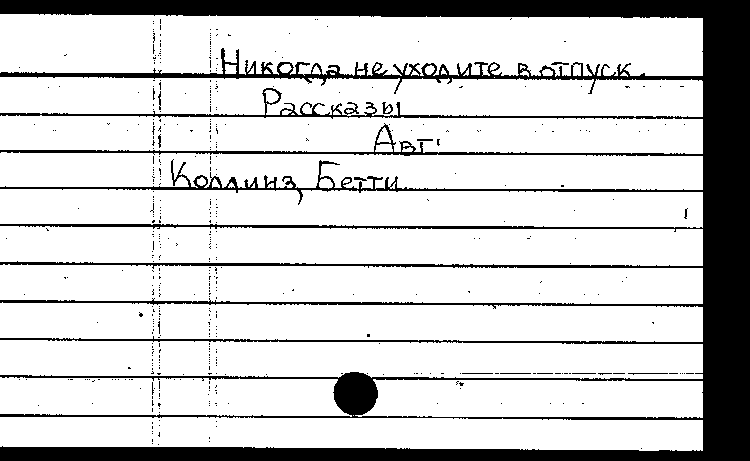 Никогда не уходите в отпуск.
Рассказы
Авт:
Коллинз, Бетти